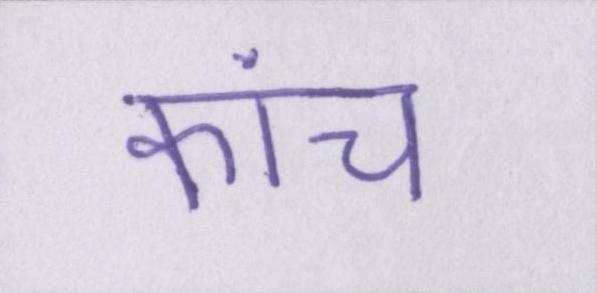 कांच